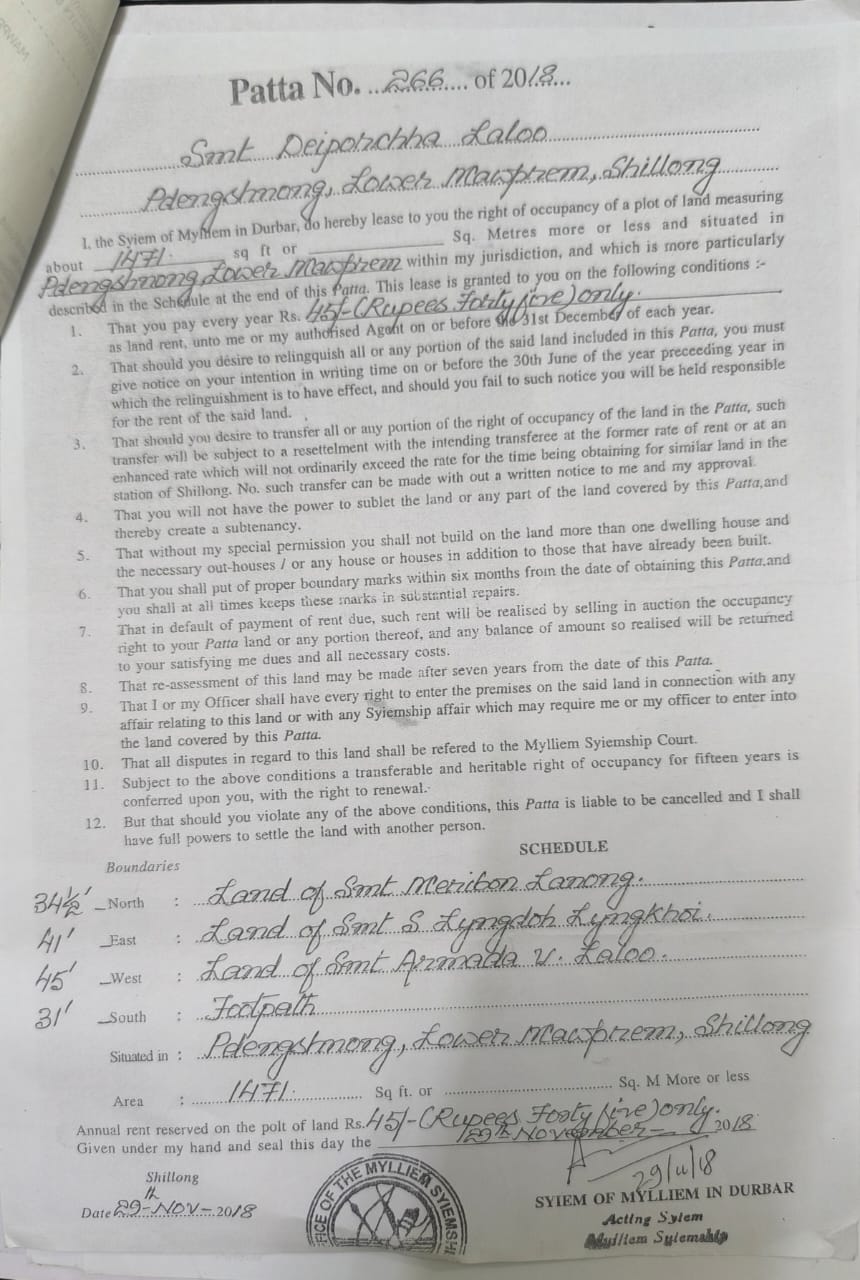 Patta No. ...266.... of 2018...
Smt Deiponchha Laloo
Pdengshnong, Lower Mawprem, Shillong
I, the Syiem of Mylliem in Durbar, do hereby lease to you the right of occupancy of a plot of land measuring
about 1471 sq ft or ____________ Sq. Metres more or less and situated in
Pdengshnong Lower Mawprem within my jurisdiction, and which is more particularly
described in the Schedule at the end of this Patta. This lease is granted to you on the following conditions :-
1. That you pay every year Rs. 45/-(Rupees Forty five) only.
as land rent, unto me or my authorised Agent on or before the 31st December of each year.
2. That should you desire to relingquish all or any portion of the said land included in this Patta, you must
give notice on your intention in writing time on or before the 30th June of the year preceeding year in
which the relinguishment is to have effect, and should you fail to such notice you will be held responsible
for the rent of the said land.
3. That should you desire to transfer all or any portion of the right of occupancy of the land in the Patta, such
transfer will be subject to a resettelment with the intending transferee at the former rate of rent or at an
enhanced rate which will not ordinarily exceed the rate for the time being obtaining for similar land in the
station of Shillong. No. such transfer can be made with out a written notice to me and my approval.
4. That you will not have the power to sublet the land or any part of the land covered by this Patta,and
thereby create a subtenancy.
5. That without my special permission you shall not build on the land more than one dwelling house and
the necessary out-houses / or any house or houses in addition to those that have already been built.
6. That you shall put of proper boundary marks within six months from the date of obtaining this Patta,and
you shall at all times keeps these marks in substantial repairs.
7. That in default of payment of rent due, such rent will be realised by selling in auction the occupancy
right to your Patta land or any portion thereof, and any balance of amount so realised will be returned
to your satisfying me dues and all necessary costs.
8. That re-assessment of this land may be made after seven years from the date of this Patta.
9. That I or my Officer shall have every right to enter the premises on the said land in connection with any
affair relating to this land or with any Syiemship affair which may require me or my officer to enter into
the land covered by this Patta.
10. That all disputes in regard to this land shall be refered to the Mylliem Syiemship Court.
11. Subject to the above conditions a transferable and heritable right of occupancy for fifteen years is
conferred upon you, with the right to renewal.
12. But that should you violate any of the above conditions, this Patta is liable to be cancelled and I shall
have full powers to settle the land with another person.
SCHEDULE
Boundaries
34½' North : Land of Smt Meribon Lanong.
41' East : Land of Smt S Lyngdoh Lyngkhoi.
45' West : Land of Smt Armada V. Laloo.
31' South : Footpath
Situated in : Pdengshnong, Lower Mawprem, Shillong
Area : 1471 Sq ft. or ............ Sq. M More or less
Annual rent reserved on the polt of land Rs. 45/-(Rupees Forty five) only.
Given under my hand and seal this day the 29th November 2018
29/11/18
Shillong
Date 29th-NOV-2018
OFFICE OF THE MYLLIEM SYIEMSHI
SYIEM OF MYLLIEM IN DURBAR
Acting Syiem
Mylliem Syiemship